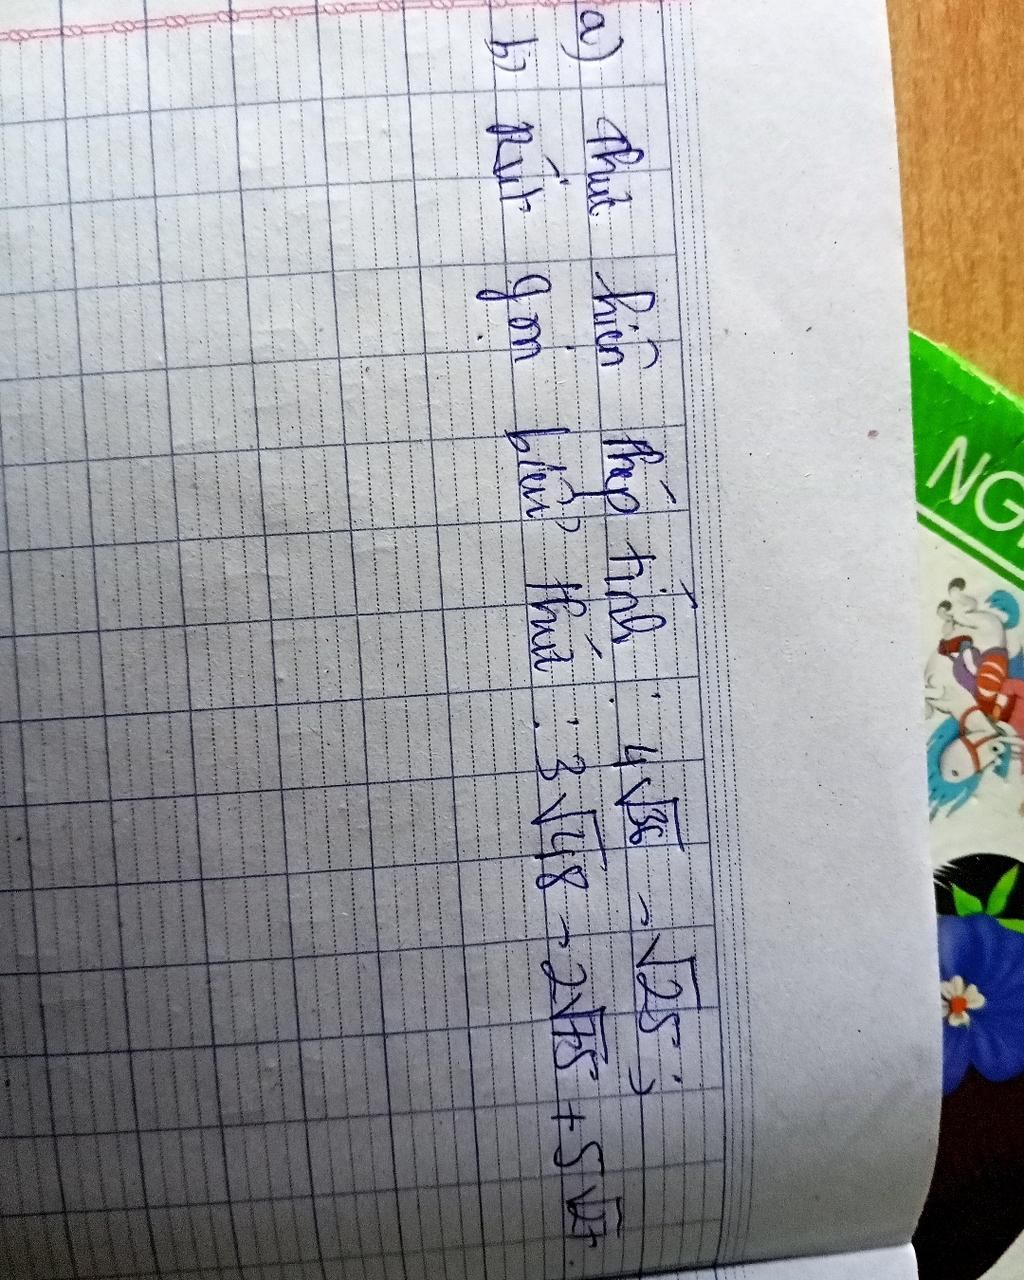 a) thực hiện phép tính : 4√36 - √25 ;
b) Rút gọn biểu thức : 3√48 - 2√75 + 5√27
NG